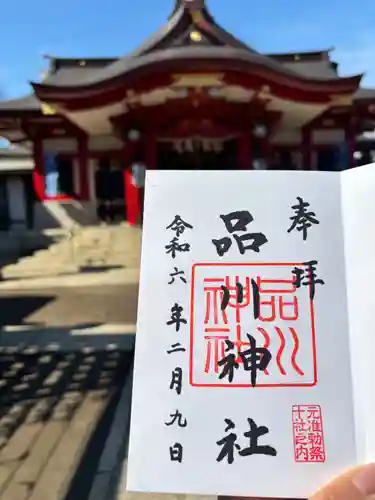 奉拝
品川神社
令和六年二月九日
品川
神社
元准勅祭
十社之内